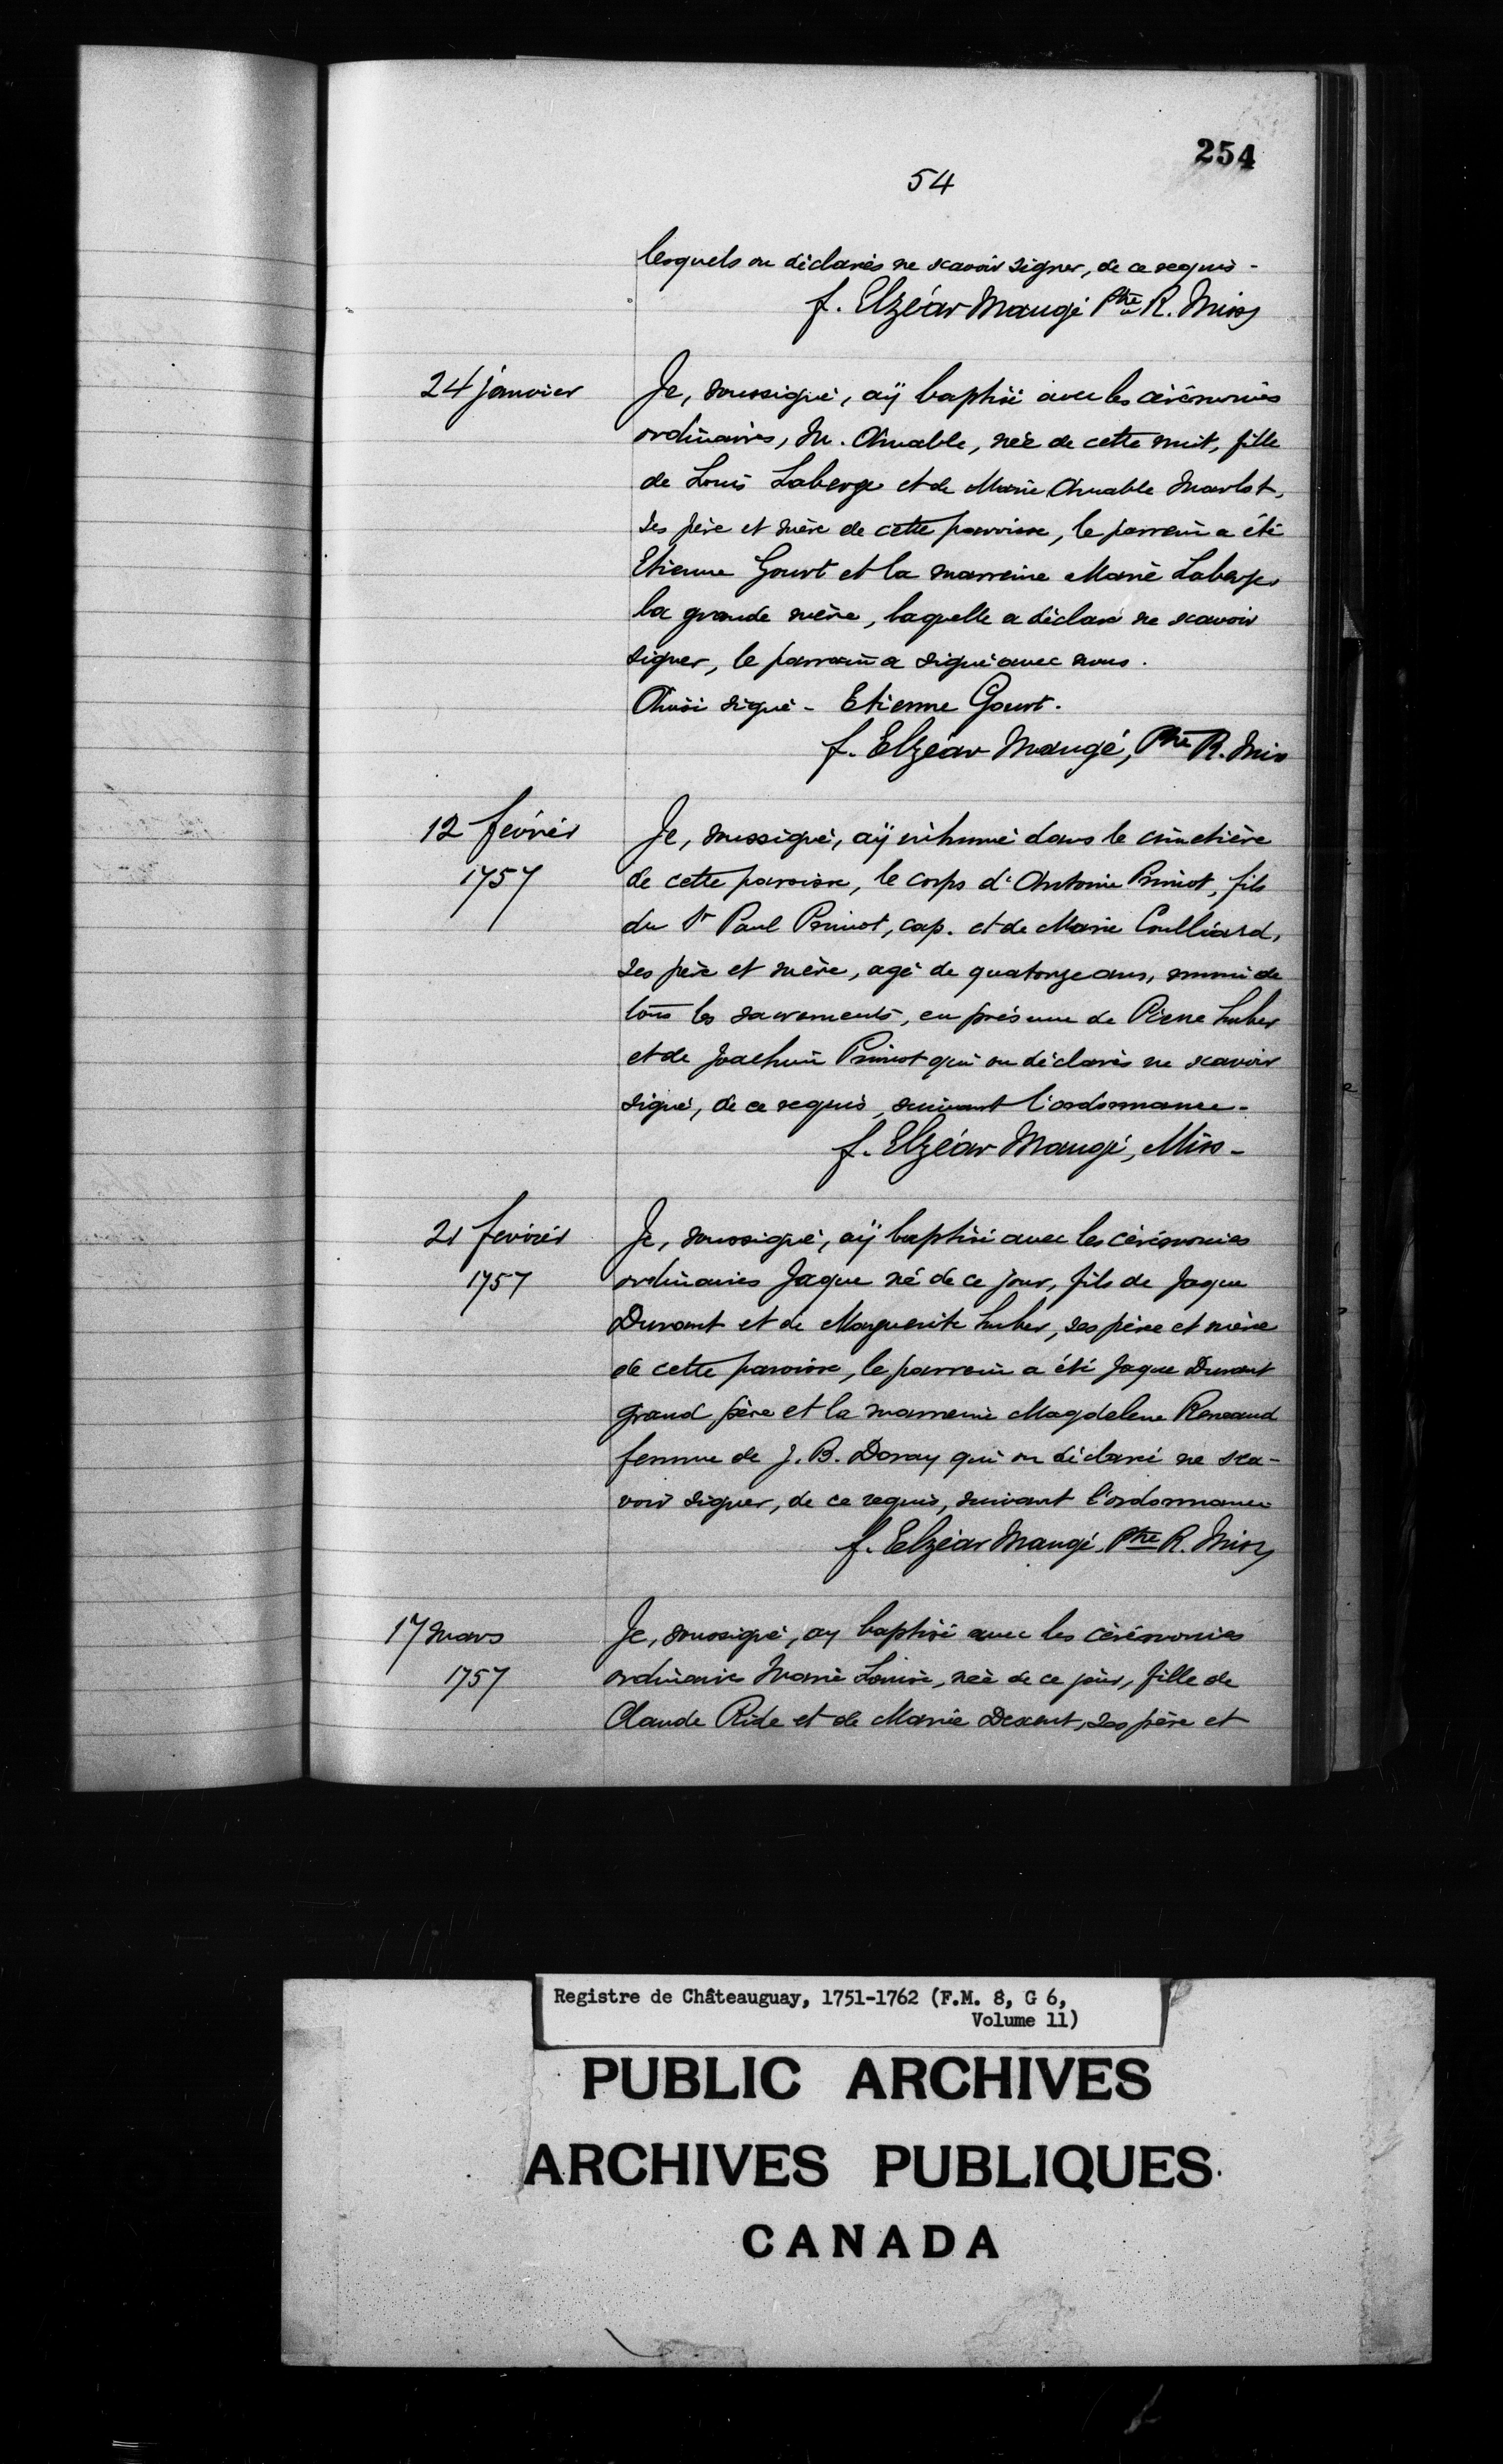 254
54
lesquels on déclarés ne scavoir signer, de ce requis -
f. Elzéar Maugé Ptre R. Miss
24 janvier
Je, soussigné, aÿ baptisé avec les cérémonies
ordinaires, M. Amable, née de cette nuit, fille
de Louis Laberge et de Marie Amable Marlot,
ses père et mère de cette paroisse, le parrain a été
Etienne Gourt et la marreine Marie Laberge
la grande mère, laquelle a déclaré ne scavoir
signer, le parrain a signé avec nous.
Ainsi signé - Etienne Gourt.
f. Elzéar Maugé, Ptre R. Mis
12 février
1757
Je, soussigné, aÿ inhumé dans le cimetière
de cette paroisse, le corps d'Antoine Primot, fils
du Sr Paul Primot, cap. et de Marie Coulliard,
ses père et mère, agé de quatorze ans, muni de
tous les sacrements, en présence de Pierre Huber
et de Joachim Primot qui on déclarés ne scavoir
signé, de ce requis, suivant l'ordonnance -
f. Elzéar Maugé, Miss -
21 février
1757
Je, soussigné, aÿ baptisé avec les cérémonies
ordinaires Jaque né de ce jour, fils de Jaque
Durant et de Marguerite Huber, ses père et mère
de cette paroisse, le parrain a été Jaque Durant
grand père et la marreine Magdelene Reneaud
femme de J. B. Doray qui on déclaré ne sca-
voir signer, de ce requis, suivant l'ordonnance
f. Elzéar Maugé, Ptre R. Miss
17 mars
1757
Je, soussigné, ay baptisé avec les cérémonies
ordinaires Marie Louise, née de ce jour, fille de
Claude Ride et de Marie ses père et
Registre de Châteauguay, 1751-1762 (F.M. 8, G 6,
Volume 11)
PUBLIC ARCHIVES
ARCHIVES PUBLIQUES
CANADA